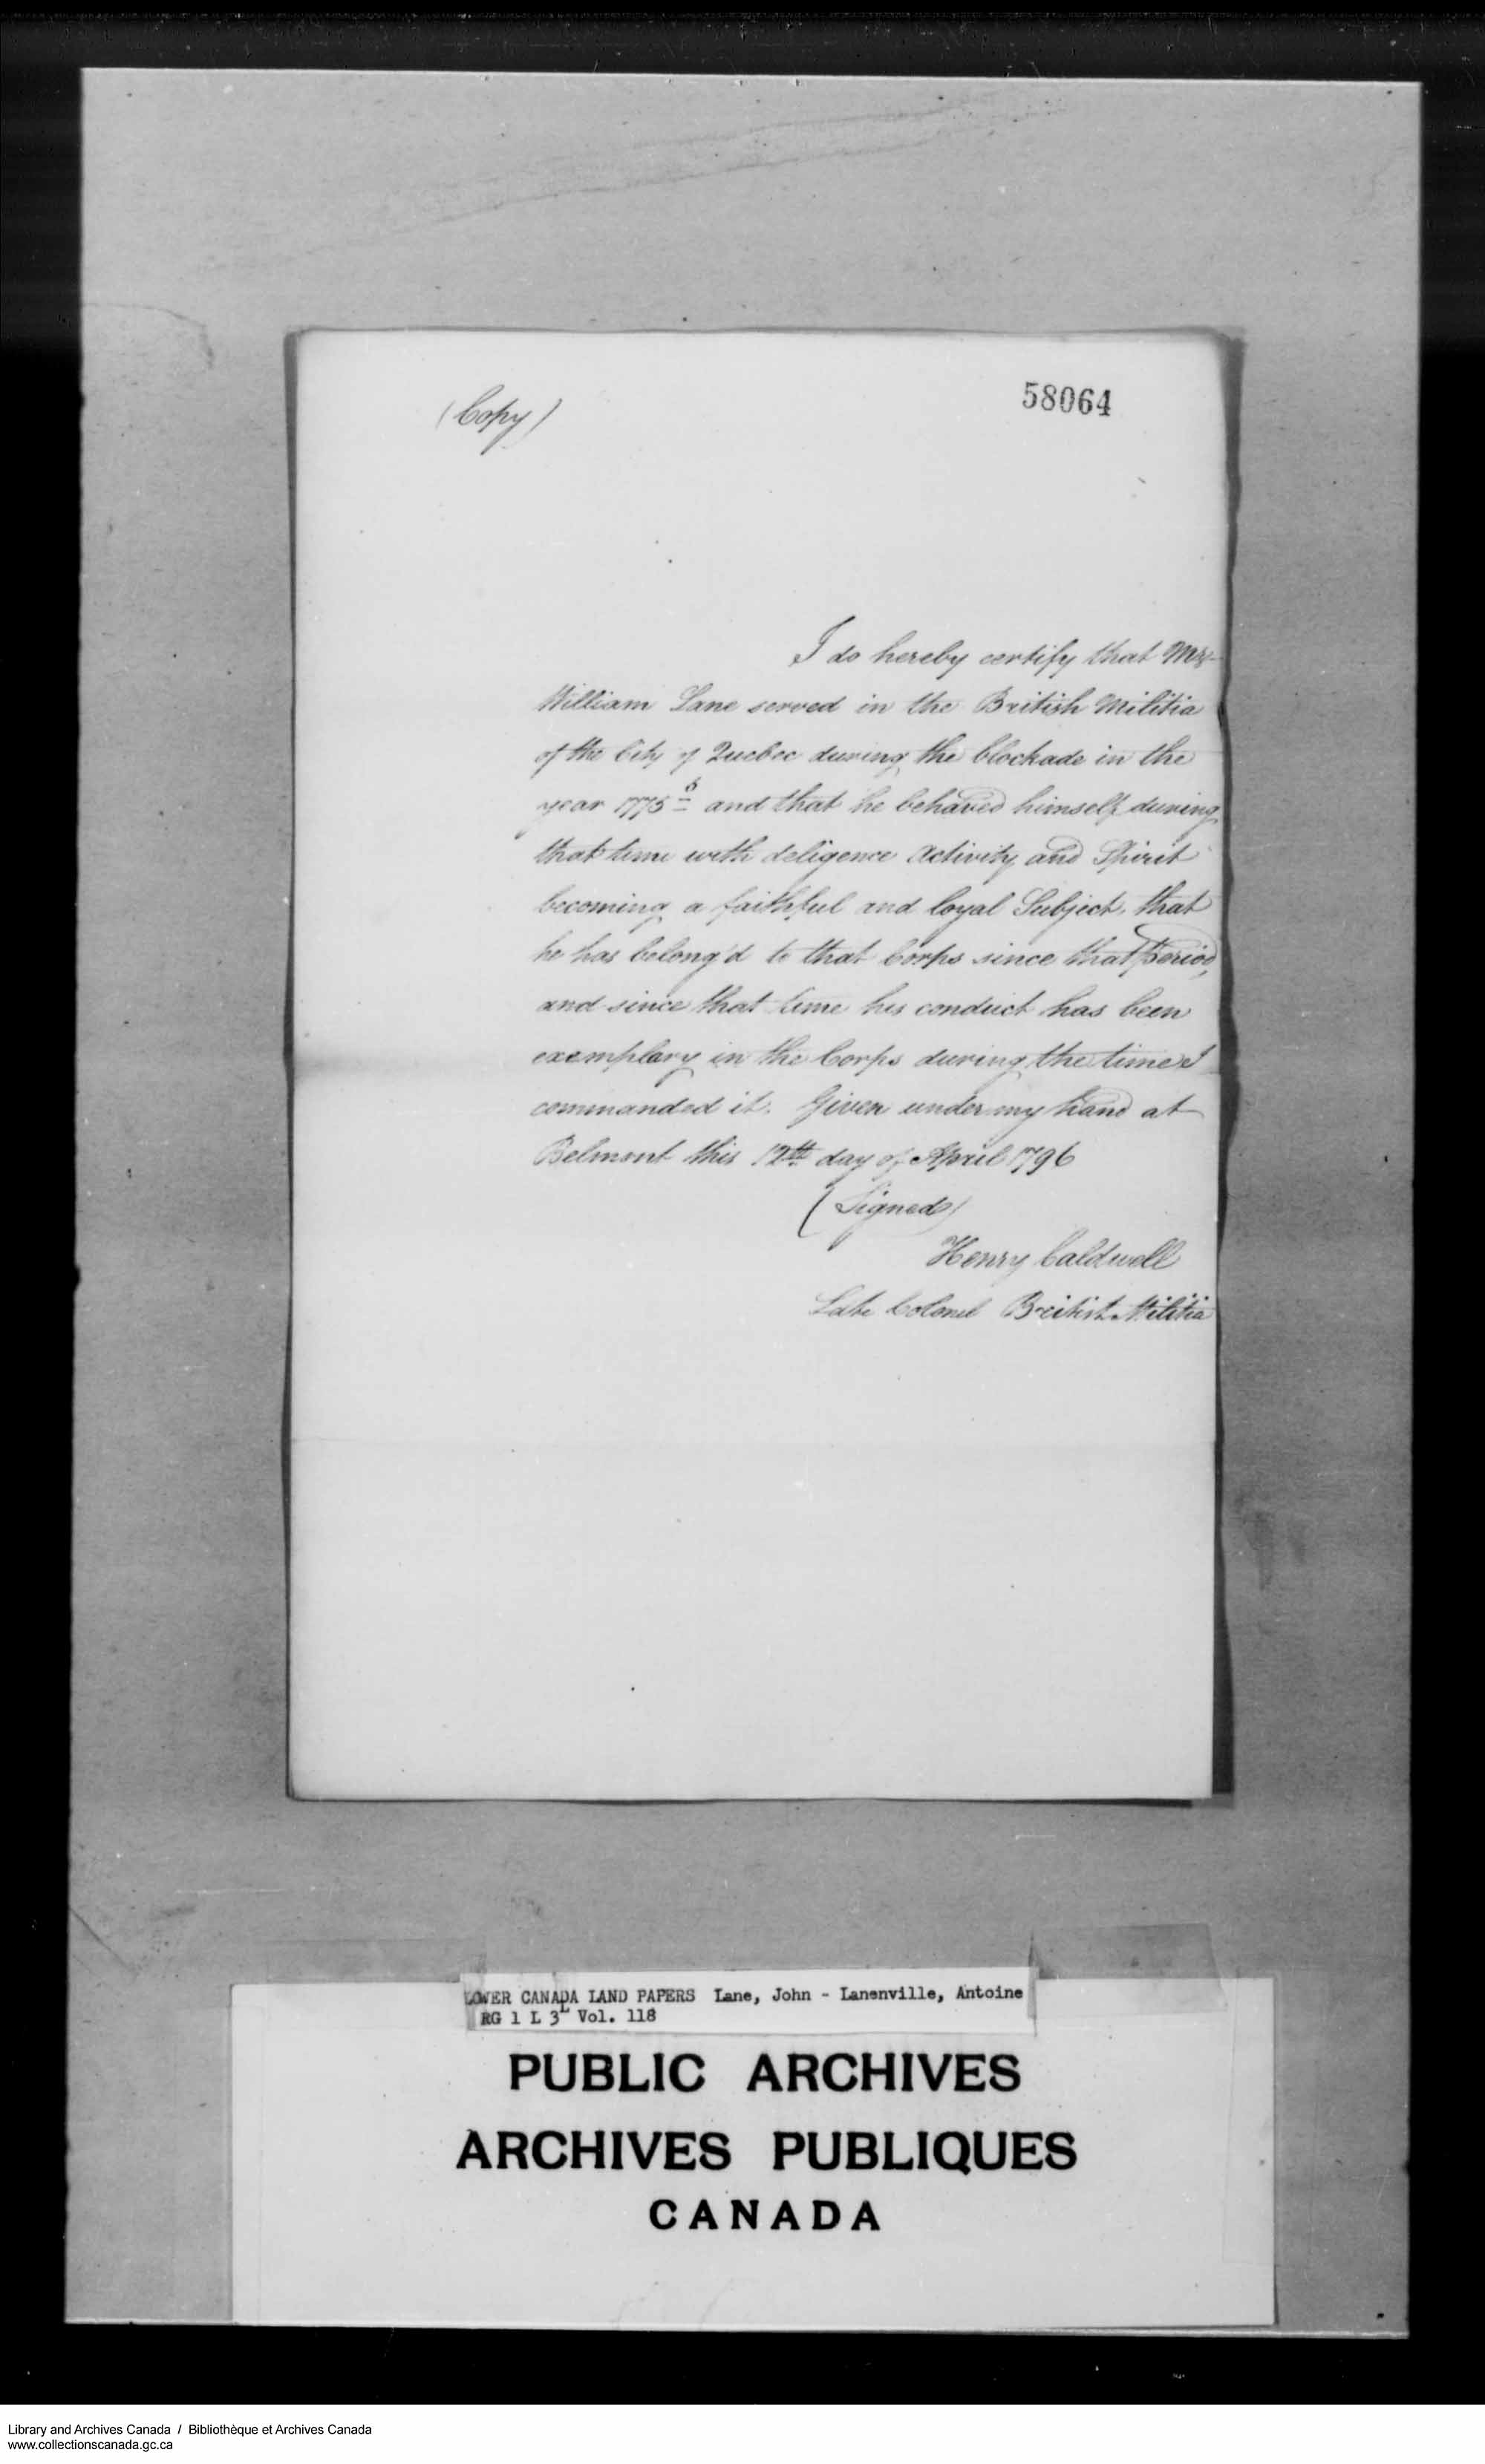 (Copy)
58064
I do hereby certify that Mr
William Lane served in the British Militia
of the City of Quebec during the blockade in the
year 1775 6 and that he behaved himself during
that time with deligence Activity and Spirit
becoming a faithful and loyal Subject, that
he has belong'd to that Corps since that Period,
and since that time his conduct has been
exemplary in the Corps during the time I
commanded it. Given under my hand at
Belmont this 12th day of April 1796
(Signed)
Henry Caldwell
Late Colonel British Militia
LOWER CANADA LAND PAPERS Lane, John - Lanenville, Antoine
RG 1 L 3L Vol. 118
PUBLIC ARCHIVES
ARCHIVES PUBLIQUES
CANADA
Library and Archives Canada / Bibliothèque et Archives Canada
www.collectionscanada.gc.ca